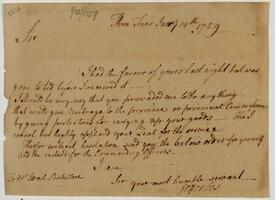 Three Tuns Janry 13th 1759
Sir
I had the favour of yours last night but was
gone to bed before I received it
I should be very sorry that you persuaded me to do any thing
that could give Umbrage to the province or provincial Commissioners
by giving for carrying up your goods That
cannot but highly applaud your Zeal for the service
I therefore without hesitation send you the below order for yourself
and the inclosed for the Commanding Officers.
I am
Sir your most humble servant
To Mr